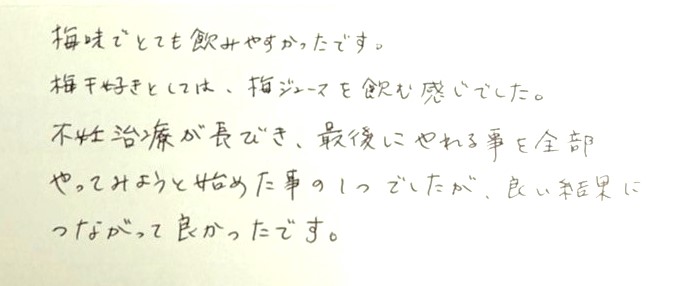 梅味でとても飲みやすかったです。
梅干好きとしては、梅ジュースを飲む感じでした。
不妊治療が長びき、最後にやれる事を全部
やってみようと始めた事の1つでしたが、良い結果に
つながって良かったです。